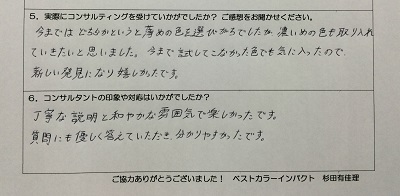 5．実際にコンサルティングを受けていかがでしたか？ ご感想をお聞かせください。
今まではどちらかというと薄めの色を選びがちでしたが、濃いめの色も取り入れ
ていきたいと思いました。今まで試してこなかった色でも気に入ったので、
新しい発見になり嬉しかったです。
6．コンサルタントの印象や対応はいかがでしたか？
丁寧な説明と和やかな雰囲気で楽しかったです。
質問にも優しく答えていただき、分かりやすかったです。
ご協力ありがとうございました！ ベストカラーインパクト 杉田有佳理